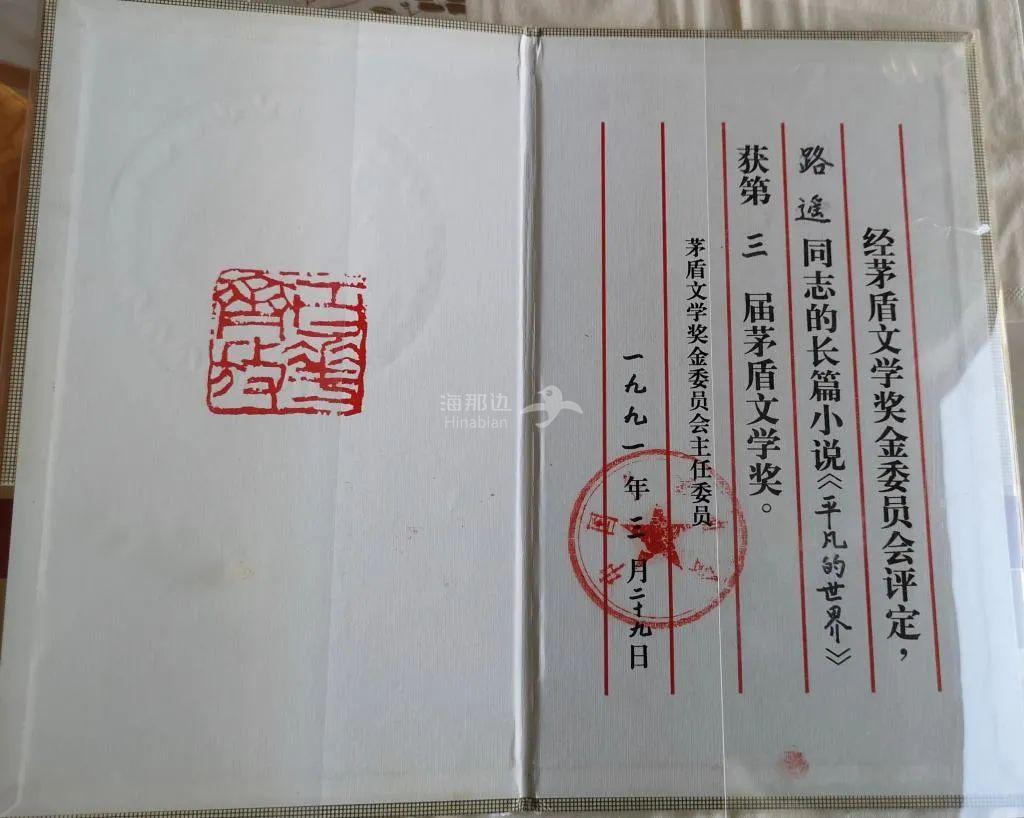 经茅盾文学奖金委员会评定，
路遥同志的长篇小说《平凡的世界》
获第三届茅盾文学奖。
茅盾文学奖金委员会主任委员
一九九一年三月二十九日
海那边
Hinabian